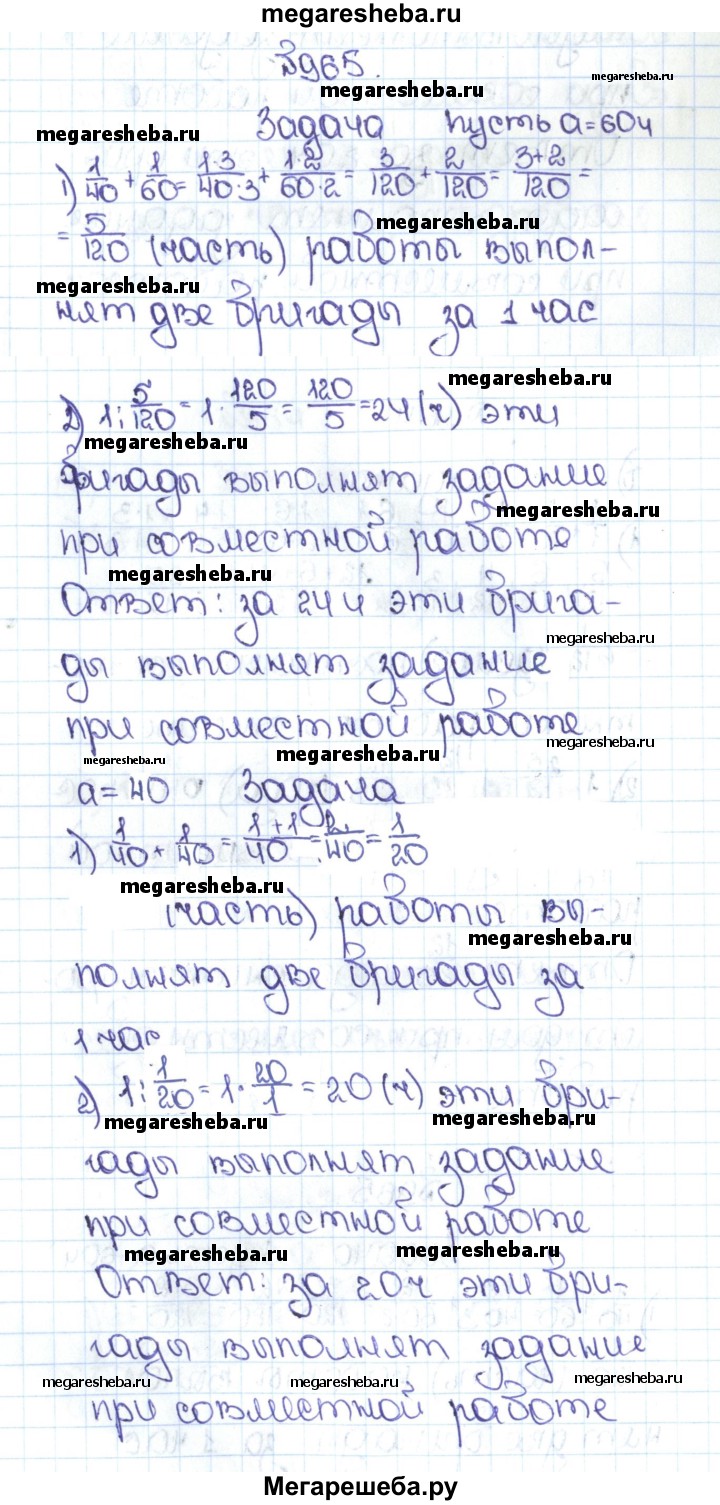 megaresheba.ru
№965.
megaresheba.ru
megaresheba.ru
megaresheba.ru
Задача пусть a=60ч
1) 1/40 + 1/60 = 1·3/40·3 + 1·2/60·2 = 3/120 + 2/120 = 3+2/120 =
megaresheba.ru
= 5/120 (часть) работы выпол-
megaresheba.ru
нят две бригады за 1 час
megaresheba.ru
2) 1:5/120 = 1·120/5 = 120/5 = 24(ч) эти
megaresheba.ru
бригады выполнят задание
megaresheba.ru
при совместной работе
megaresheba.ru
Ответ: за 24ч эти брига-
megaresheba.ru
ды выполнят задание
при совместной работе
megaresheba.ru
megaresheba.ru
megaresheba.ru
a=40 Задача
1) 1/40 + 1/40 = 1+1/40 = 2/40 = 1/20
megaresheba.ru
(часть) работы вы-
megaresheba.ru
полнят две бригады за
1 час
2) 1:1/20 = 1·20/1 = 20(ч) эти бри-
megaresheba.ru
megaresheba.ru
гады выполнят задание
при совместной работе
megaresheba.ru
megaresheba.ru
Ответ: за 20ч эти бри-
гады выполнят задание
megaresheba.ru
megaresheba.ru
megaresheba.ru
при совместной работе
Мегарешеба.ру